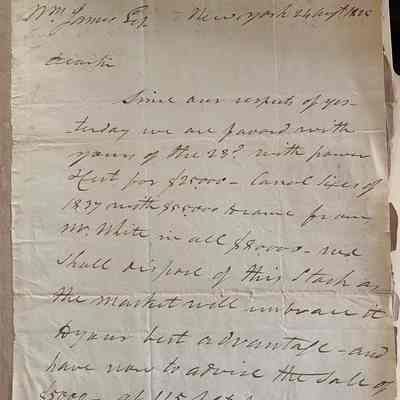 Wm James Esq New York 24 Augt
Dear Sir
Since our respects of yes-
-terday we are favord with
yours of the 23d with power
& Cert for $25000 - Canal 6 pes of
1837 with $55000 from
Mr. White in all $80000 - and
Shall dispose of this Stock as
the market will embrace it
to your best advantage - and
have now to advise the Sale of
$5000 - at 115